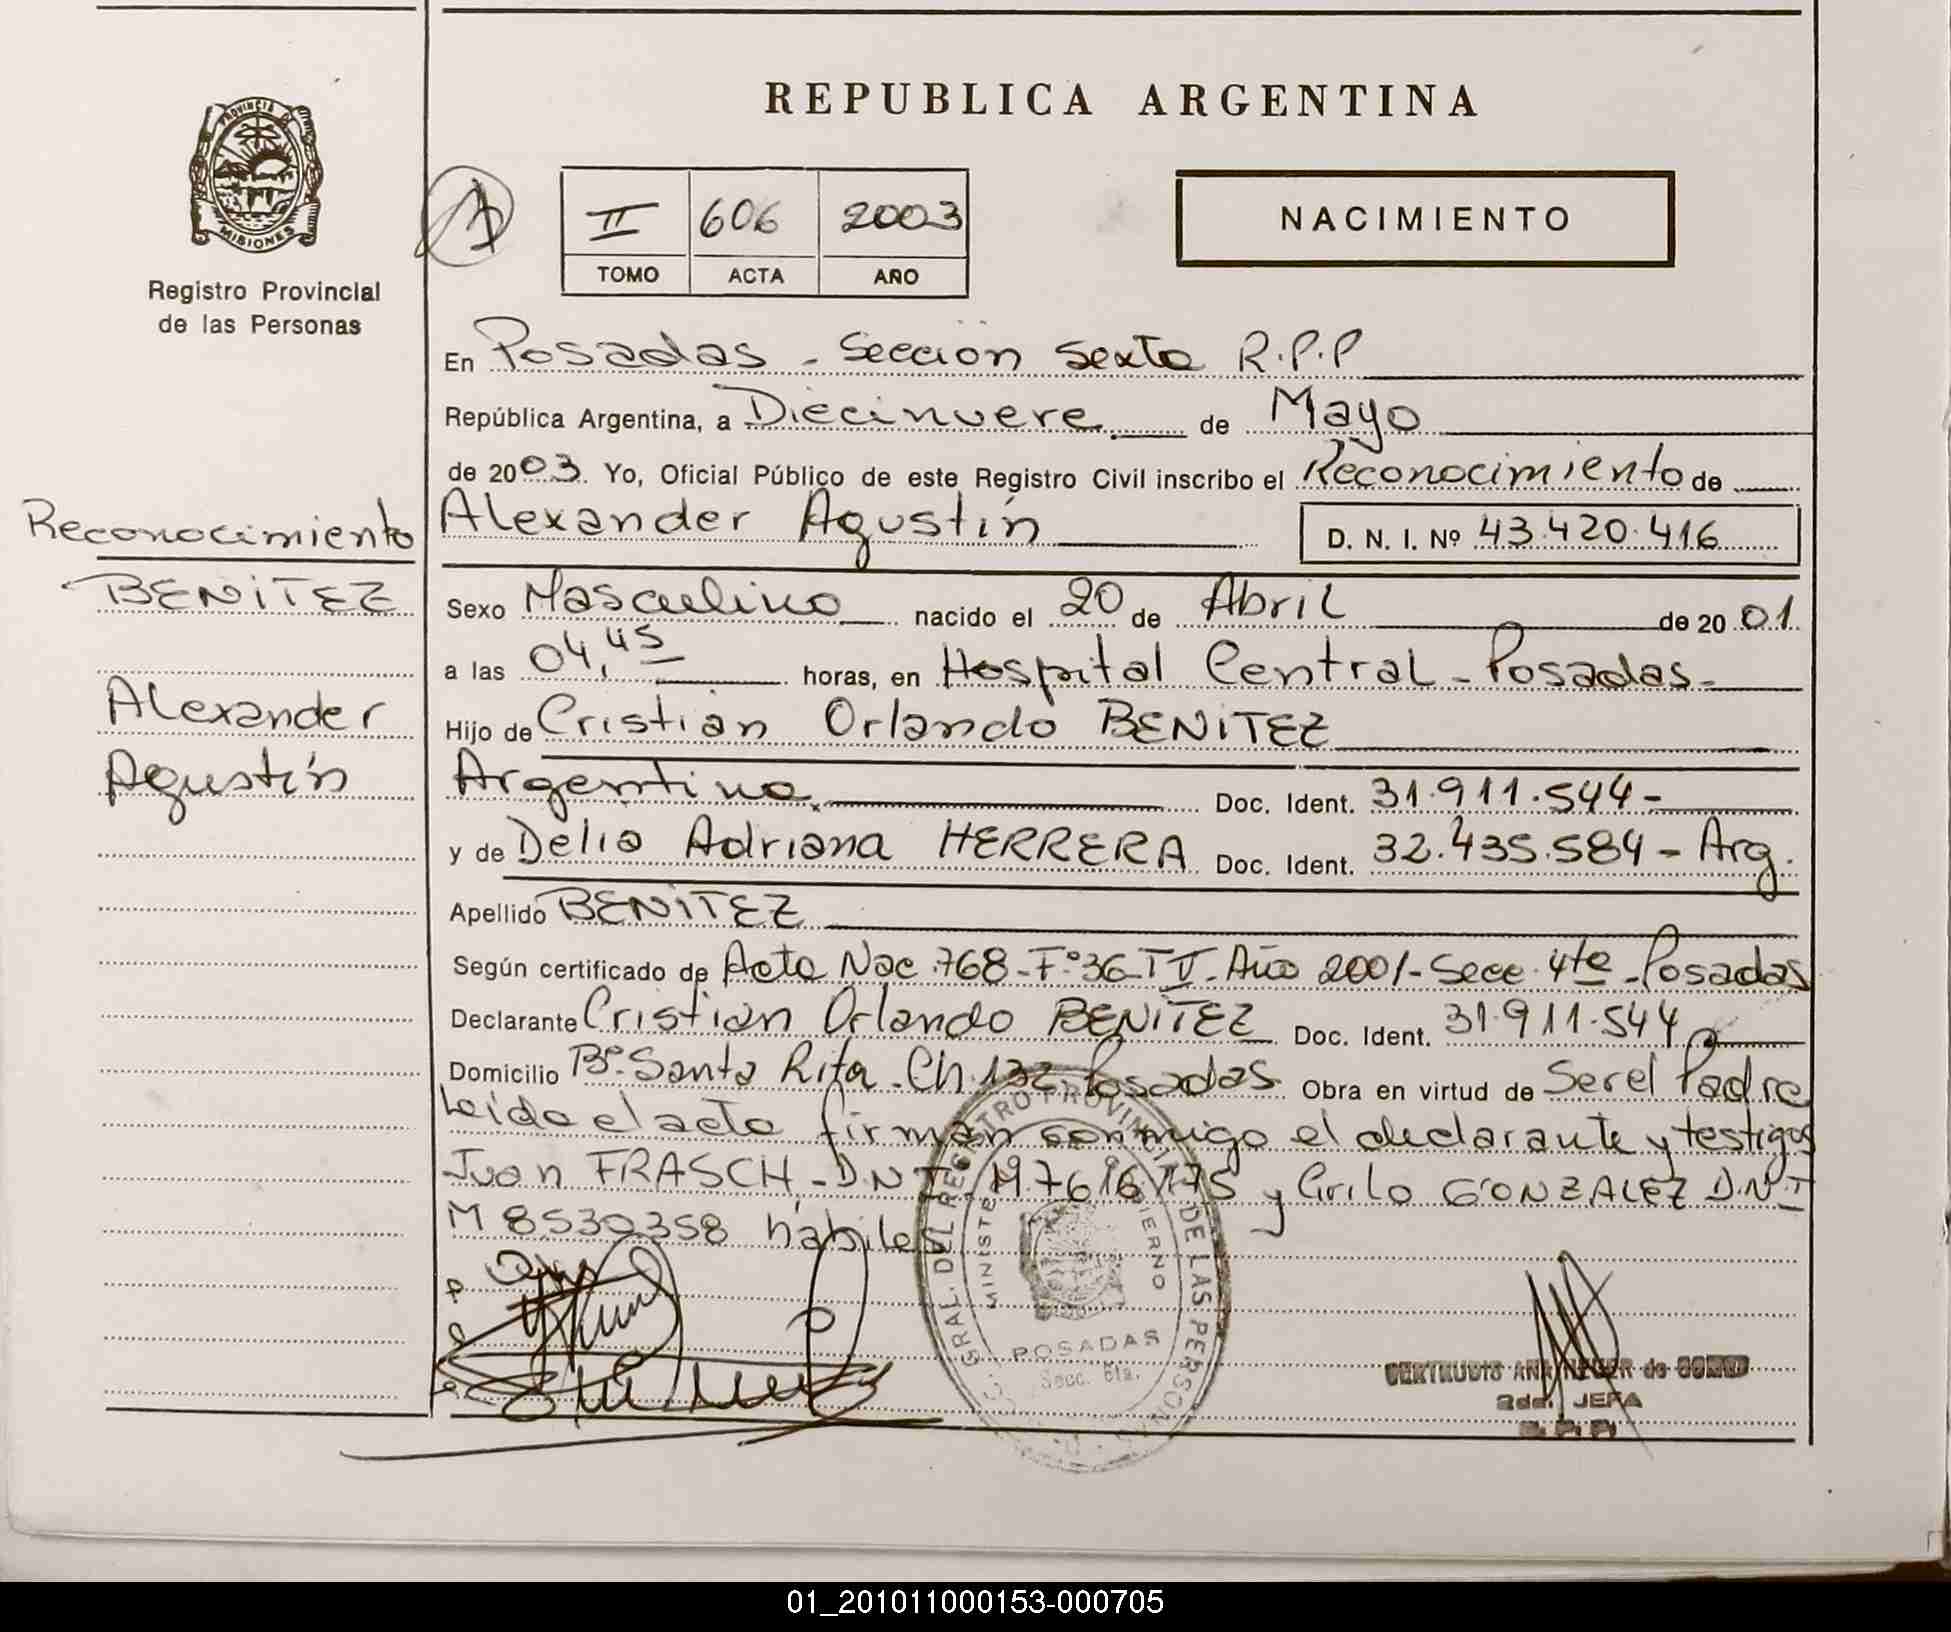 REPUBLICA ARGENTINA
PROVINCIA DE
MISIONES
Registro Provincial
de las Personas
A
II 606 2003
TOMO ACTA AÑO
NACIMIENTO
En Posadas - Sección Sexta R.P.P
República Argentina, a Diecinueve de Mayo
de 2003. Yo, Oficial Público de este Registro Civil inscribo el Reconocimiento de
Reconocimiento
BENITEZ
Alexander
Agustín
Alexander Agustín D. N. I. Nº 43.420.416
Sexo Masculino nacido el 20 de Abril de 2001.
a las 04,45 horas, en Hospital Central - Posadas -
Hijo de Cristian Orlando BENITEZ
Argentino. Doc. Ident. 31.911.544 -
y de Delia Adriana HERRERA Doc. Ident. 32.435.584 - Arg.
Apellido BENITEZ
Según certificado de Acta Nac. 768 - Fº 36 - T V - Año 2001 - Secc. 4ta - Posadas
Declarante Cristian Orlando BENITEZ Doc. Ident. 31.911.544
Domicilio Bº Santa Rita - Ch. 132 - Posadas Obra en virtud de Ser el Padre
Leído el acta firman conmigo el declarante y testigos
Juan FRASCH - D.N.I. M.7616175 y Cirilo GONZALEZ D.N.I
M 8530358 hábiles
GRAL. DEL REGISTRO PROVINCIAL DE LAS PERSONAS
POSADAS
Secc. 6ta.
GERTRUDIS ANA de
2da. JEFA
R. P. P.
01_201011000153-000705